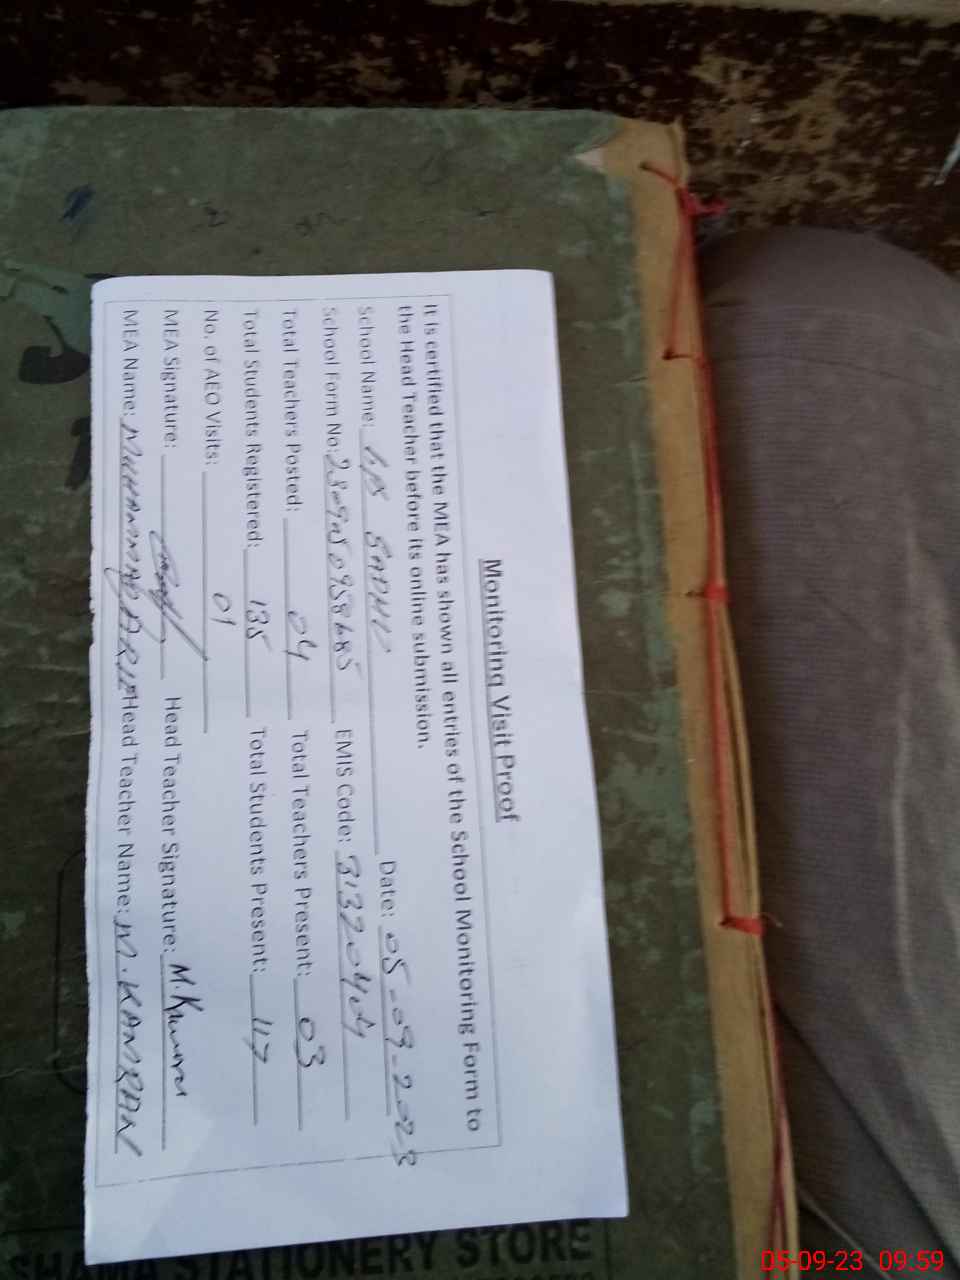 Monitoring Visit Proof
It is certified that the MEA has shown all entries of the School Monitoring Form to
the Head Teacher before its online submission.
School Name: Date: 05-09-2023
School Form No: EMIS Code: 31320404
Total Teachers Posted: 04 Total Teachers Present: 03
Total Students Registered: 135 Total Students Present: 117
No. of AEO Visits: 01
MEA Signature: Head Teacher Signature: M.Kamran
MEA Name: MUHAMMAD ARIF Head Teacher Name: M. KAMRAN
STATIONERY STORE
05-09-23 09:59